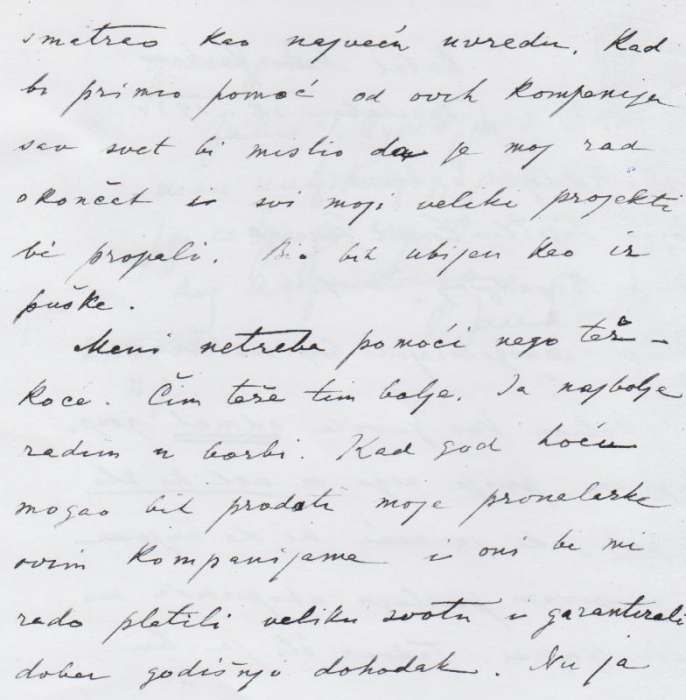 smatrao kao najveću uvredu. Kad
bi primio pomoć od ovih kompanija
sav svet bi mislio da je moj rad
okončat i svi moji veliki projekti
bi propali. Bio bih ubijen kao iz
puške.
Meni netreba pomoći nego teš-
koće. Čim teže tim bolje. Ja najbolje
radim u borbi. Kad god hoću
mogao bih prodati moje pronalaske
ovim kompanijama i oni bi mi
rado platili veliku svotu i garantirali
dobar godišnji dohodak. Nu ja